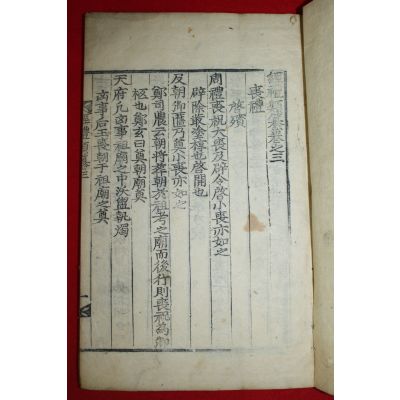 經禮類纂卷之三
喪禮
啓殯
周禮喪祝大喪及辟令啓小喪亦如之
辟除菆塗椁也啓開也
及朝御匶乃奠小喪亦如之
鄭司農云朝將葬朝於祖考之廟而後行則喪祝為御
柩也鄭玄曰奠朝廟奠
天府凡凶事祖廟之中沃盥執燭
凶事后王喪朝于祖廟之奠